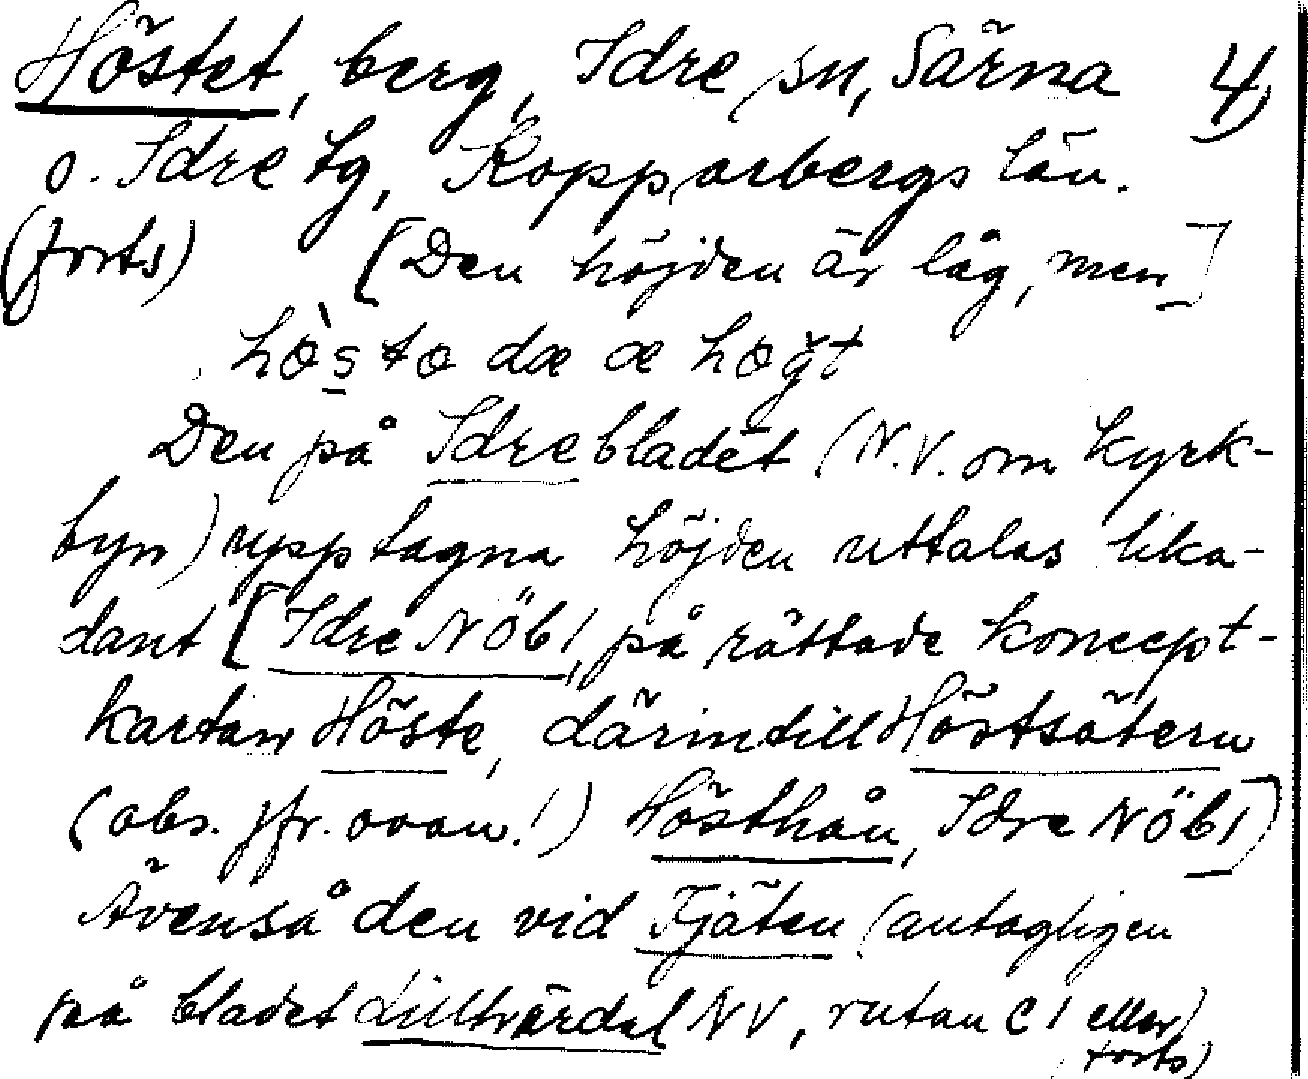 Höstet, berg, Idre sn, Särna 4)
o. Idre tg, Kopparbergs län.
(forts) [Den höjden är låg, men]
hò̀sto dæ æ högt
Den på Idrebladet (N.V. om kyrk-
byn) upptagna höjden uttalas lika-
dant [Idre NÖbl, på rättade koncept-
kartan Höste, därintill Höstsätern
(obs. jfr. ovan!) Hösthån, Idre NÖbl]
Ävenså den vid Fjäten (antagligen
på bladet Lillhärdal NV, rutan C1 eller
(forts)